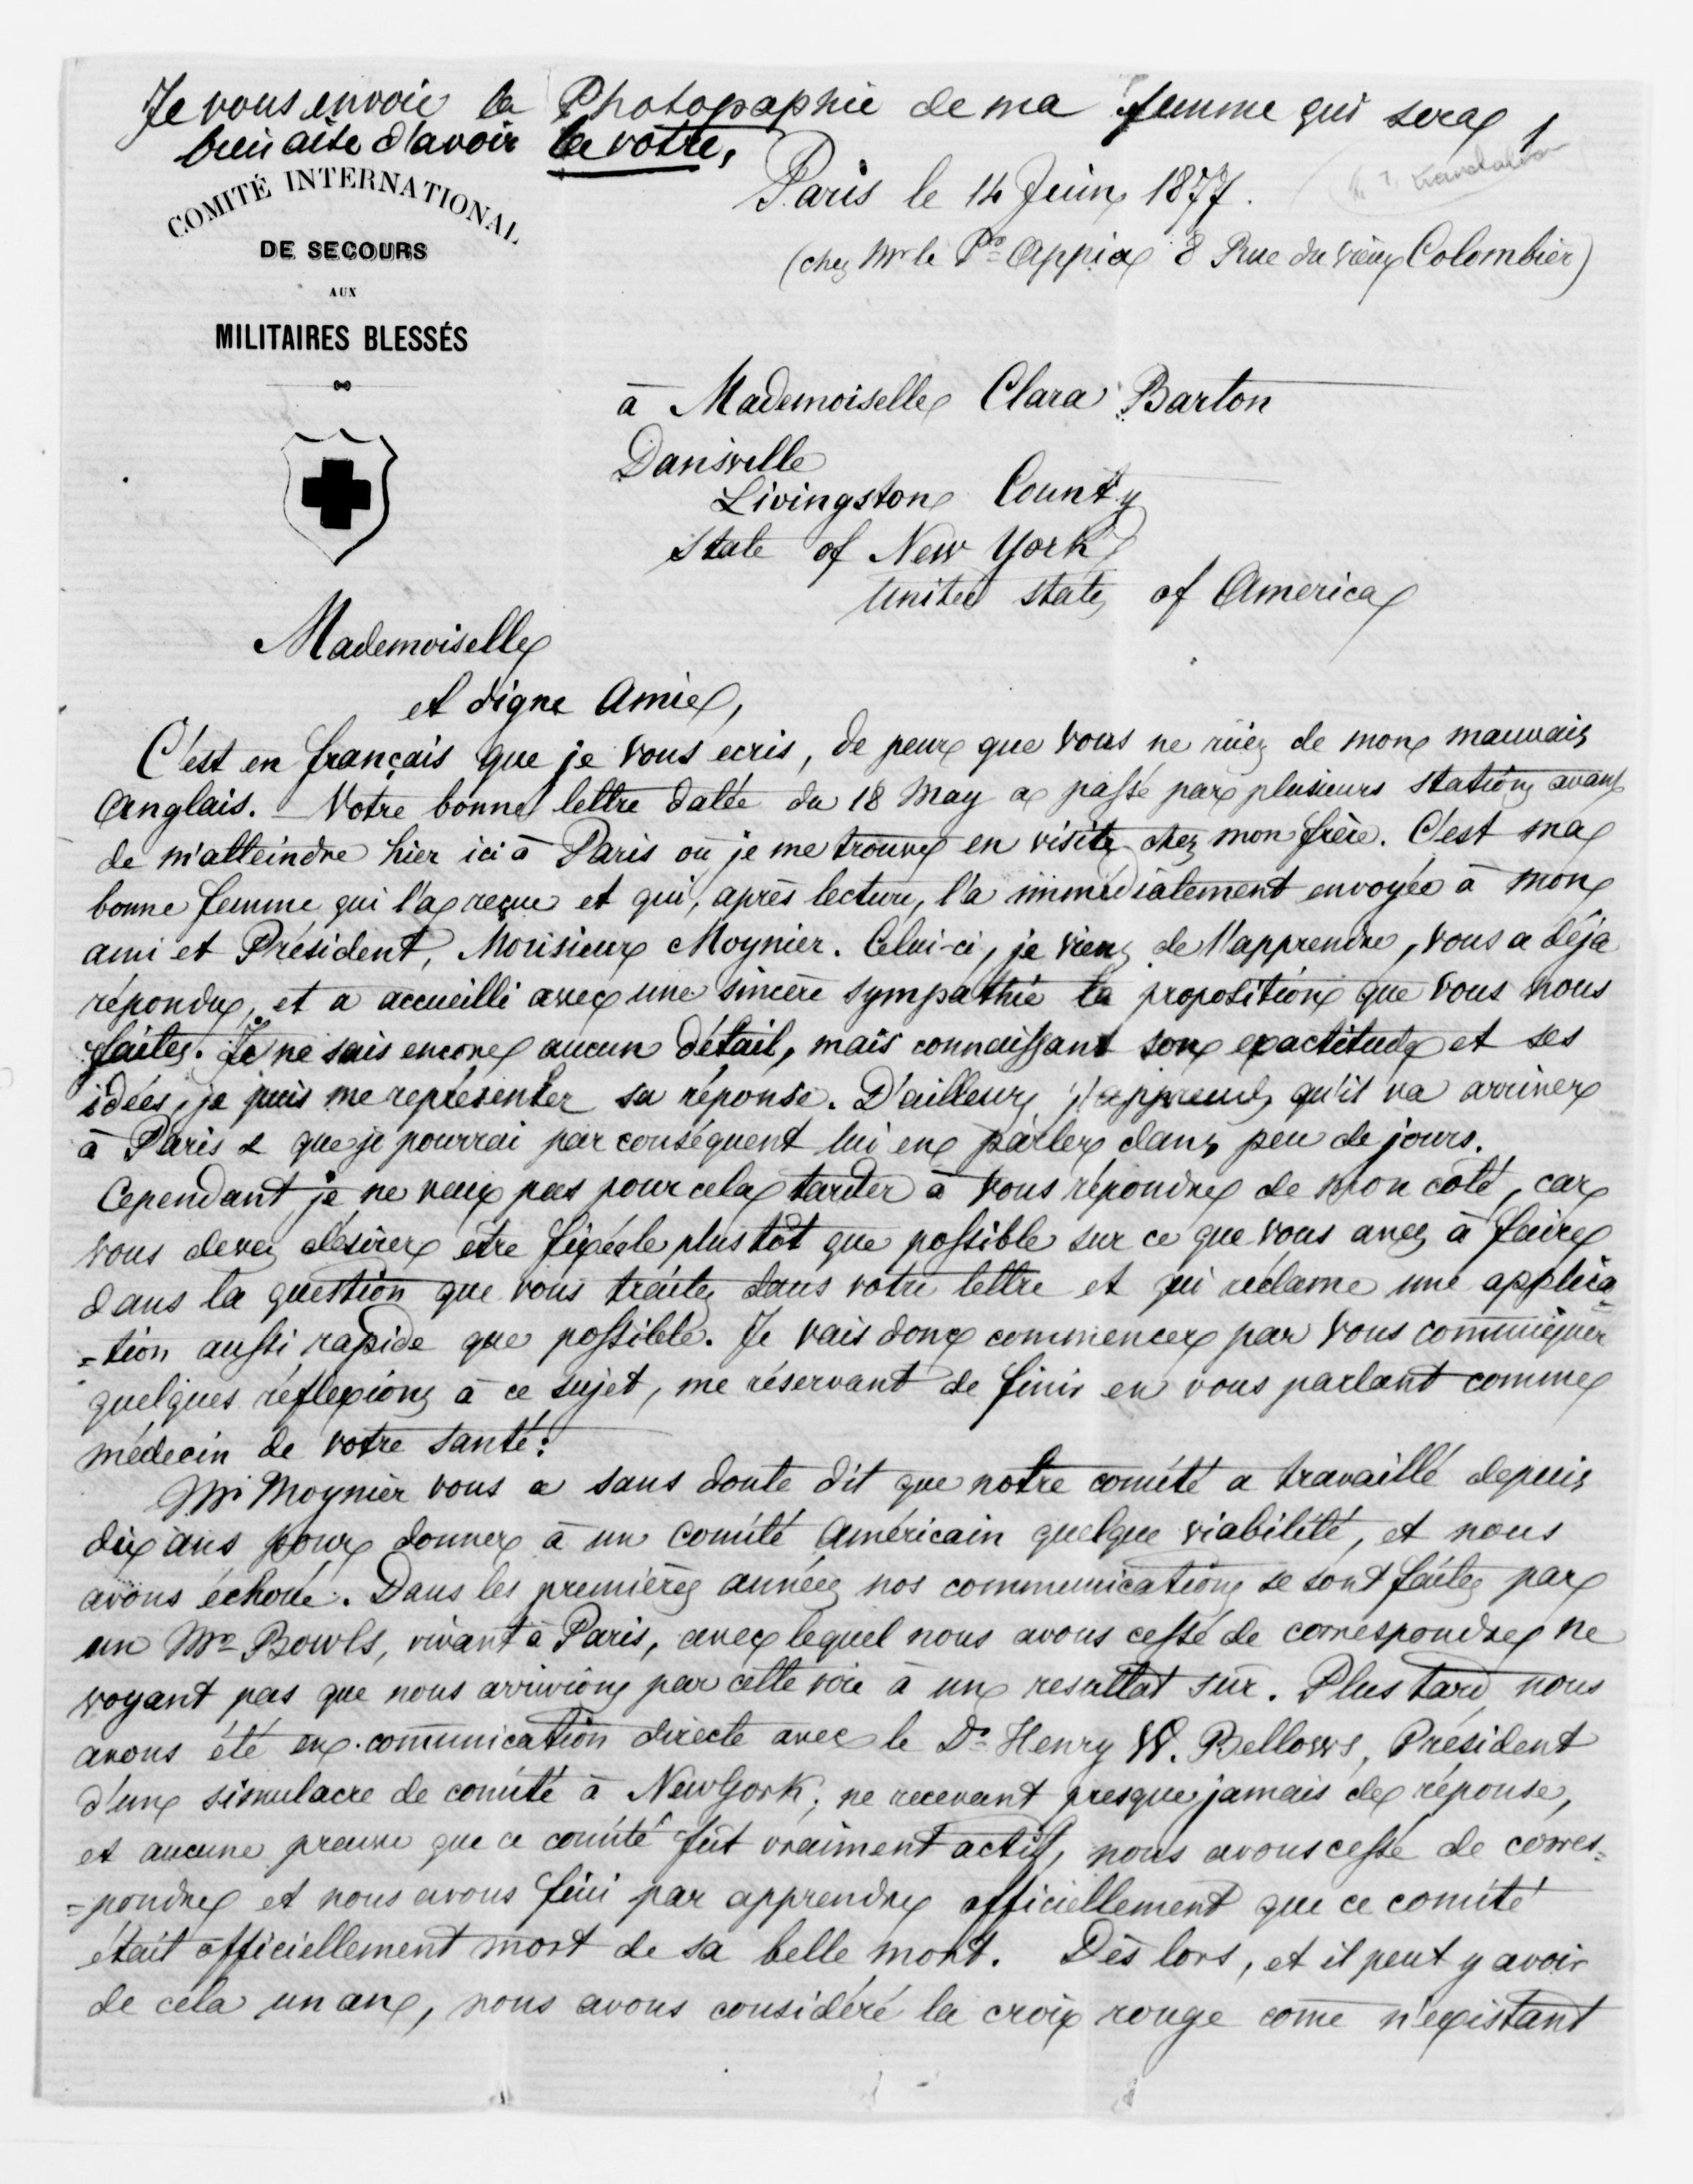 Je vous envoie la Photographie de ma femme qui sera
bien aise d'avoir la votre,
COMITÉ INTERNATIONAL
DE SECOURS
AUX
MILITAIRES BLESSÉS
Paris le 14 Juin 1877.
(chez Mr le Pr Appia 8 Rue du vieux Colombier)
à Mademoiselle Clara Barton
Dansville
Livingston County
State of New York
United States of America
Mademoiselle
et digne Amie,
C'est en français que je vous ecris, de peur que vous ne riiez de mon mauvais
Anglais. Votre bonne lettre datée du 18 May a passé par plusieurs stations avant
de m'atteindre hier ici à Paris où je me trouve en visite chez mon frère. C'est ma
bonne femme qui l'a reçue et qui, après lecture, l'a immédiatement envoyée à mon
ami et Président, Monsieur Moynier. Celui-ci, je viens de l'apprendre, vous a déja
répondu, et a accueilli avec une sincère sympathie la proposition que vous nous
faites. Je ne sais encore aucun détail, mais connaissant son exactitude et ses
idées, je puis me représenter sa réponse. D'ailleurs, j'apprends qu'il va arriver
à Paris & que je pourrai par conséquent lui en parler dans peu de jours.
Cependant je ne veux pas pour cela tarder à vous répondre de mon coté, car
vous devez désirer être fixée le plus tôt que possible sur ce que vous avez à faire
dans la question que vous traitez dans votre lettre et qui réclame une applica
=tion aussi rapide que possible. Je vais donc commencer par vous communiquer
quelques réflexions à ce sujet, me réservant de finir en vous parlant comme
médecin de votre santé:
Mr Moynier vous a sans doute dit que notre comité a travaillé depuis
dix ans pour donner à un Comité Américain quelque viabilité, et nous
avons échoué. Dans les premières années nos communications se sont faites par
un Mr Bowls, vivant à Paris, avec lequel nous avons cessé de correspondre ne
voyant pas que nous arrivions par cette voie à un resultat sûr. Plus tard nous
avons été en communication directe avec le Dr Henry W. Bellows, Président
d'un simulacre de comité à New York; ne recevant presque jamais de réponse,
et aucune preuve que ce comité fût vraiment actif, nous avons cessé de corres=
=pondre et nous avons fini par apprendre officiellement que ce comité
était officiellement mort de sa belle mort. Dès lors, et il peut y avoir
de cela un an, nous avons considéré la croix rouge come n'existant